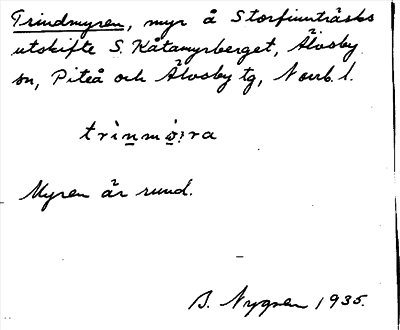 Trindmyren, myr å Storfinnträsks
utskifte S. Kåtamyrberget, Älvsby
sn, Piteå och Älvsby tg, Norrb. l.
Myren är rund.
B. Nygren 1935.